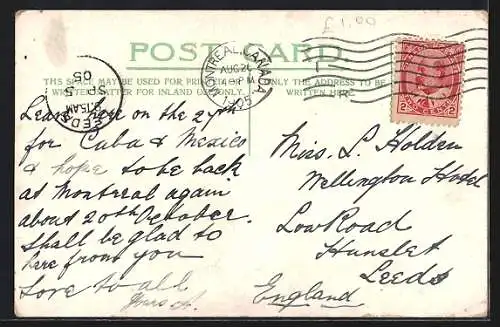 £1.00
POST CARD
THIS SPACE MAY BE USED FOR PRINTED OR
WRITTEN MATTER FOR INLAND ONLY.
ONLY THE ADDRESS TO BE
WRITTEN HERE.
MONTREAL, CANADA
AUG 26
PM
1905
LEEDS
5.15 AM
SP 5
05
2 CENTS 2
Leave here on the 27th
for Cuba & Mexico
& hope to be back
at Montreal again
about 20th October.
Shall be glad to
here from you
Love to all
Yours A.
Miss. L. Holden
Wellington Hotel
Low Road
Hunslet
Leeds
England